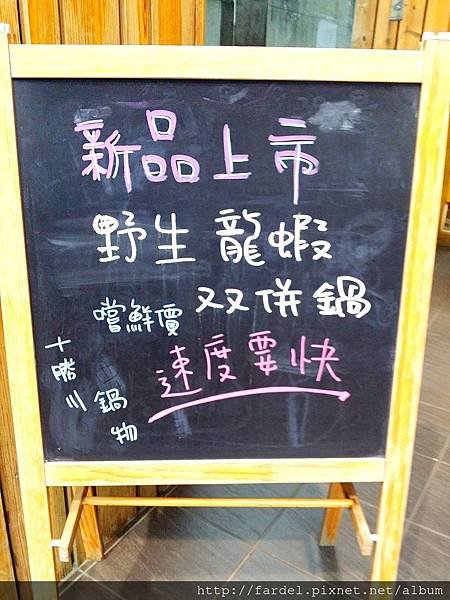 新品上市
野生龍蝦
嚐鮮價 双併鍋
速度要快
十勝川
鍋物
http://fardel.pixnet.net/album